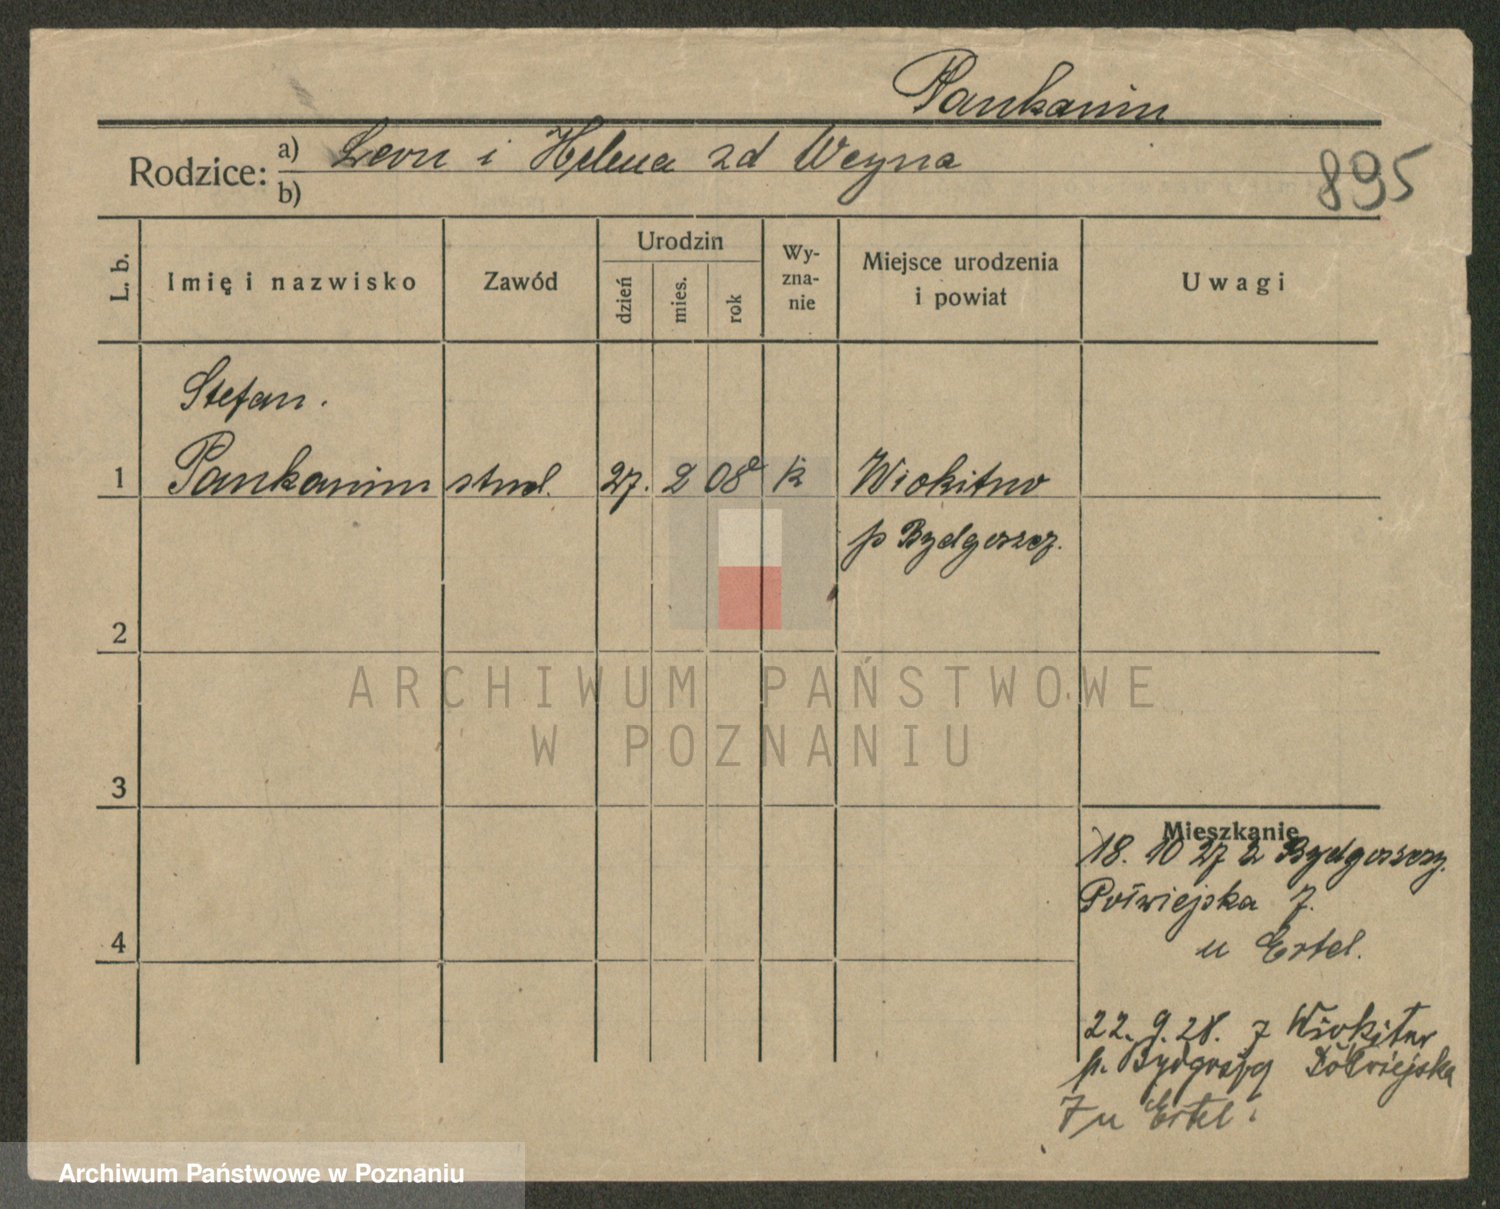 Pankanin
Rodzice: a) Leon i Helena zd Weyna
b)
895
L. b. Imię i nazwisko Zawód Urodzin dzień mies. rok Wy-zna-nie Miejsce urodzenia i powiat Uwagi
Stefan.
1 Pankanin stud. 27. 2 08 k Wiskitno
p Bydgoszcz.
2
ARCHIWUM PAŃSTWOWE
W POZNANIU
3
Mieszkanie
18. 10 27 z Bydgoszczy.
Półwiejska 7.
4
u Ertel.
22. 9. 28. z Wiskitna
p. Bydgoszcz Półwiejska
7 u Ertel.
Archiwum Państwowe w Poznaniu